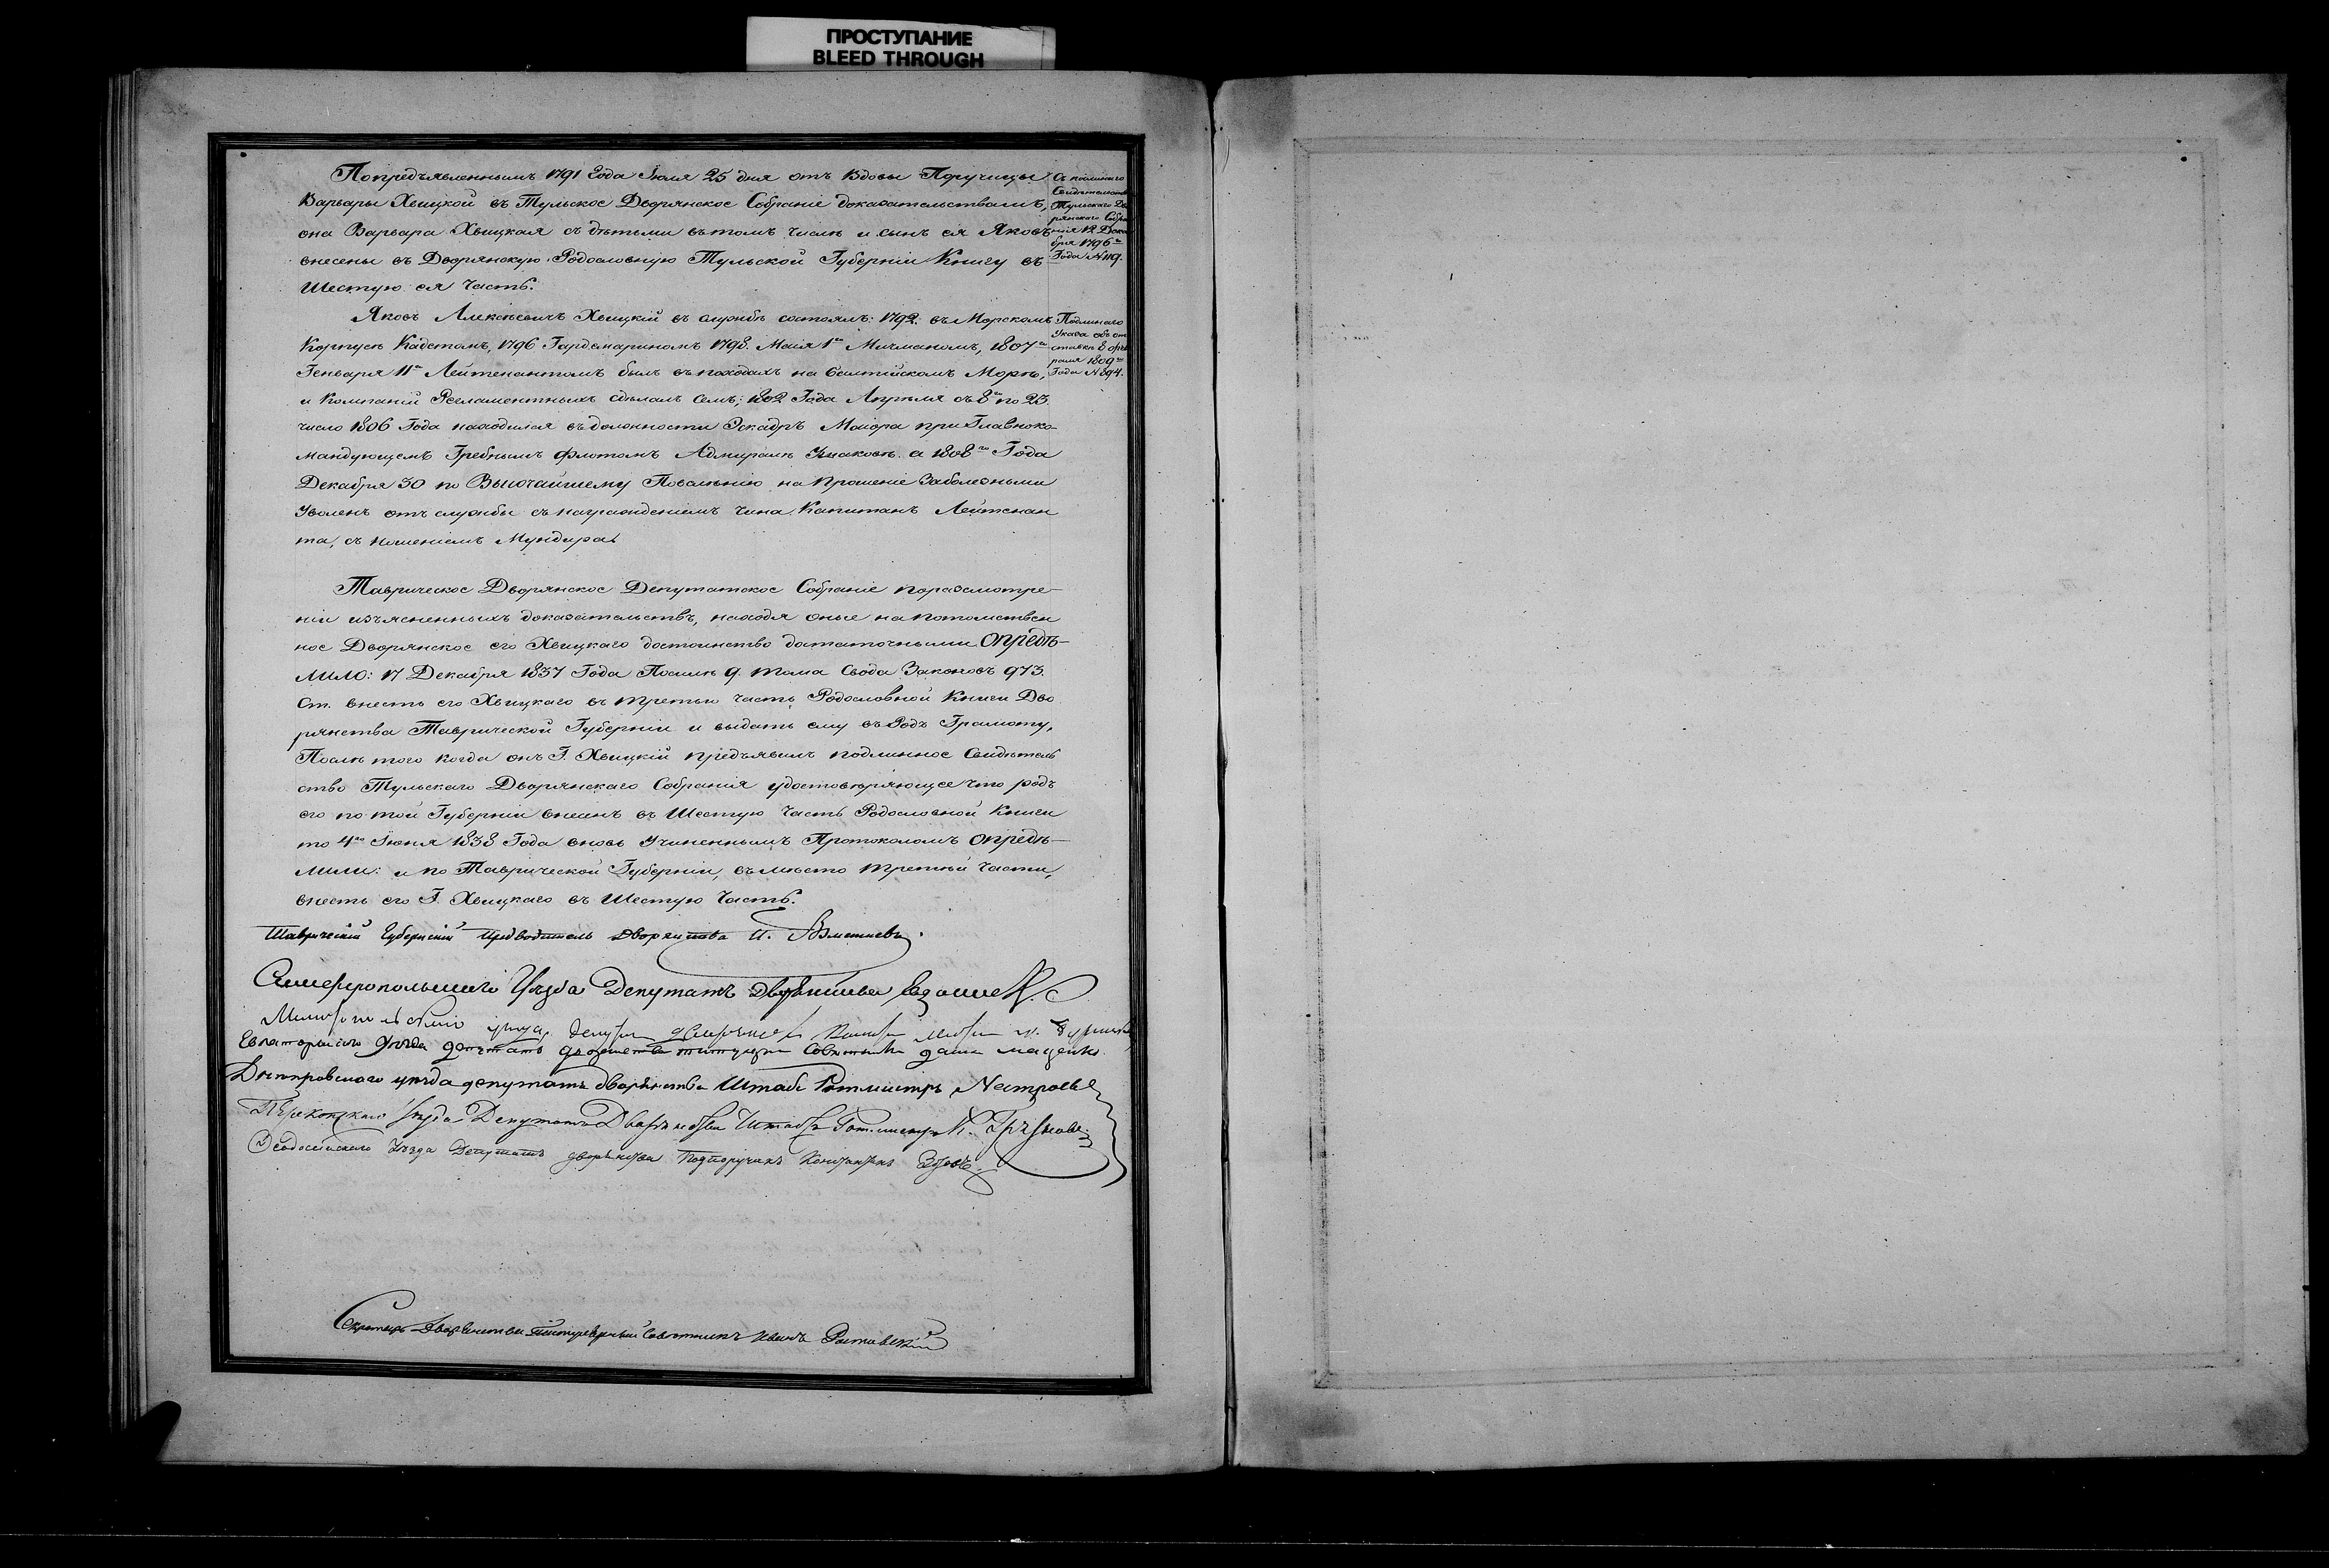 ПРОСТУПАНИЕ
BLEED THROUGH
По предъявленнымъ 1791 Года Іюля 25 дня отъ Вдовы Поручицы
Варвары Хвицкой въ Тульское Дворянское Собраніе доказательствамъ,
она Варвара Хвицкая съ дѣтьми въ томъ числѣ и сынъ ея Яковъ
внесены въ Дворянскую Родословную Тульской Губерніи Книгу въ
Шестую ея Часть.
Съ подлиннаго
Свидѣтельства
Тульскаго Дво
рянскаго Собра
нія 12 Дека
бря 1796го
Года № 119.
Яковъ Алексѣевичъ Хвицкій въ службѣ состоялъ: 1792. въ Морскомъ
Корпусѣ Кадетомъ, 1796 Гардемариномъ 1798. Маія 1го Мичманомъ, 1807го
Генваря 11го Лейтенантомъ былъ въ походахъ на Балтійскомъ Морѣ,
и Компаній Регламентныхъ сдѣлалъ семь; 1802 Года Апрѣля съ 8го по 23
число 1806 Года находился въ должности Эскадръ Маіора при Главноко-
мандующемъ Гребнымъ Флотомъ Адмиралѣ Ушаковѣ. а 1808го Года
Декабря 30 по Высочайшему Повелѣнію на прошеніе За болезньми
Уволенъ отъ службы съ награжденіемъ чина Капитанъ Лейтенан
та, съ ношеніемъ Мундира.
Подлиннаго
Указа объ от
ставкѣ 8 Фев
раля 1809го
Года № 894.
Таврическое Дворянское Депутатское Собраніе по разсмотре-
ніи изъясненныхъ доказательствъ, находя оные на потомствен
ное Дворянское его Хвицкаго достоинство достаточными Опредѣ-
лило: 17 Декабря 1837 Года По силѣ 9. тома Свода Законовъ 973.
Ст. внесть его Хвицкаго въ третью часть Родословной Книги Дво
рянства Таврической Губерніи и выдать ему въ Родъ Грамоту,
Послѣ того когда онъ Г. Хвицкій предъявилъ подлинное Свидѣтель
ство Тульскаго Дворянскаго Собранія удостовѣряющее что родъ
его по той Губерніи внесенъ въ Шестую Часть Родословной Книги
то 4го Іюня 1838 Года вновь Учиненнымъ Протоколомъ Опредѣ-
лили: и по Таврической Губерніи, въ мѣсто третьей части,
внесть его Г. Хвицкаго въ Шестую Часть.
Таврическій Губернскій Предводитель Дворянства
Симферопольскаго Уѣзда Депутатъ Дворянства
Мелитопольскаго уѣзда депутатъ
Евпаторійскаго Уѣзда депутатъ дворянства титулярн Совѣтникъ
Днѣпровскаго уѣзда депутатъ дворянства Штабъ Ротмистръ
Перекопскаго Уѣзда Депутатъ Дворянства Штабсъ Ротмистръ
Ѳеодосійскаго Уѣзда Депутатъ дворянства Подпоручикъ Константинъ
Секретарь Дворянства Титулярный Совѣтникъ Иванъ